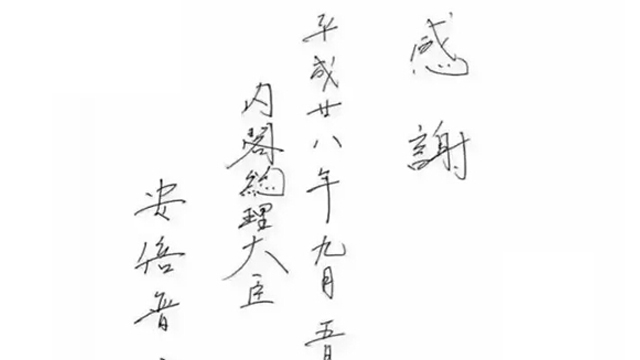 感謝
平成廿八年九月五日
内閣総理大臣
安倍晋